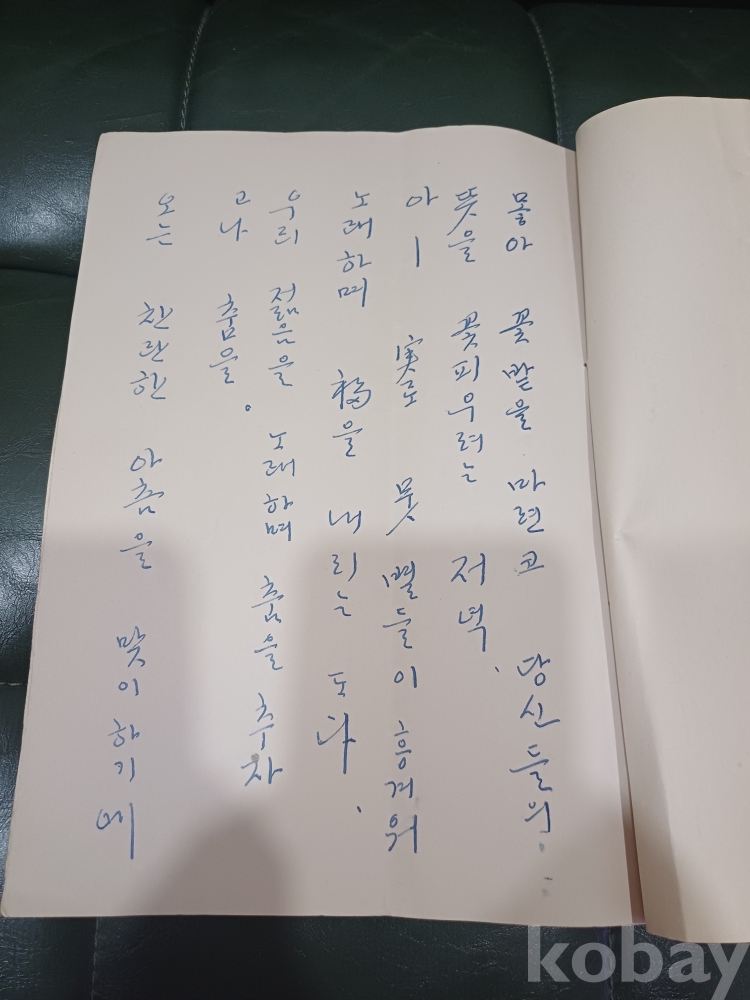 뫃아 꽃밭을 마련코 당신들의
뜻을 꽃피우려는 저녁.
아ㅣ 実로 뭇 별들이 흥겨워
노래하며 福을 내리는 도다.
우리 젊음을 노래하며 춤을 추자
고나 춤을.
오는 찬란한 아츰을 맞이하기에
kobay